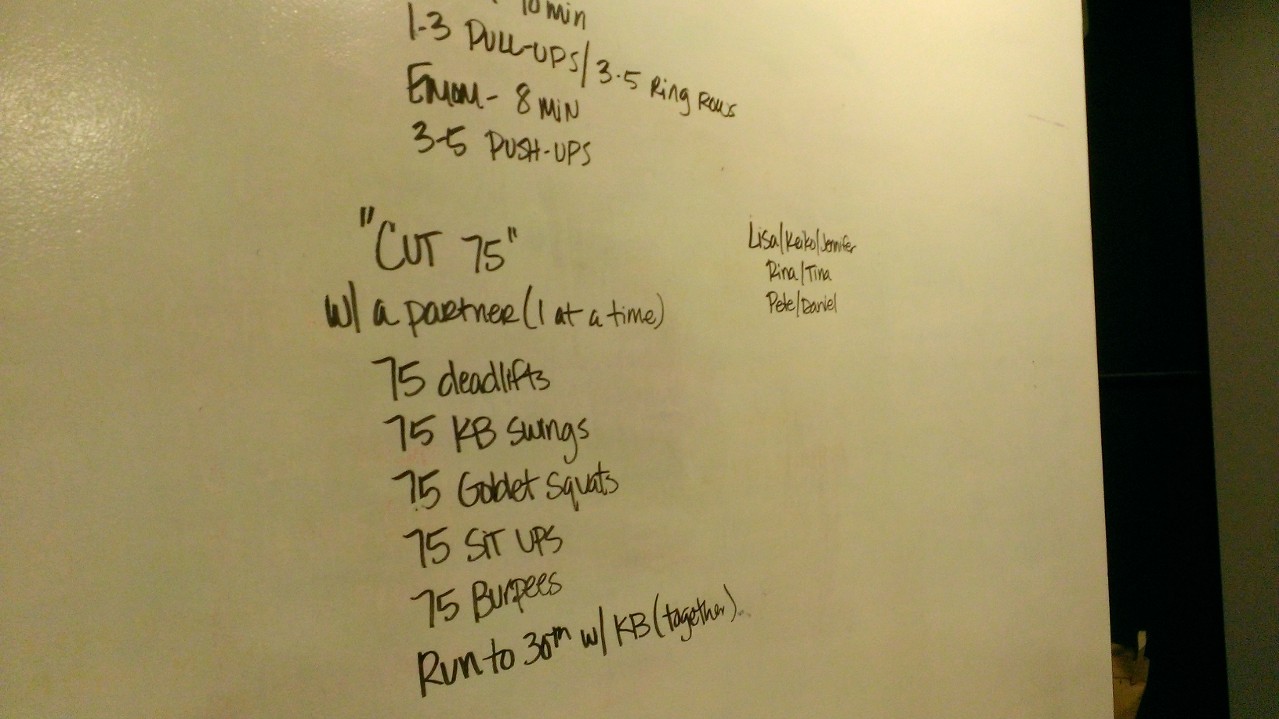 10 min
1-3 PULL-UPS/3-5 Ring Rows
EMOM- 8 MIN
3-5 PUSH-UPS
"CUT 75"
w/ a partner (1 at a time)
75 deadlifts
75 KB swings
75 Goblet squats
75 SIT UPS
75 Burpees
Run to 30th w/ KB (together)
Lisa/Keiko/Jennifer
Rina/Tina
Pete/Daniel